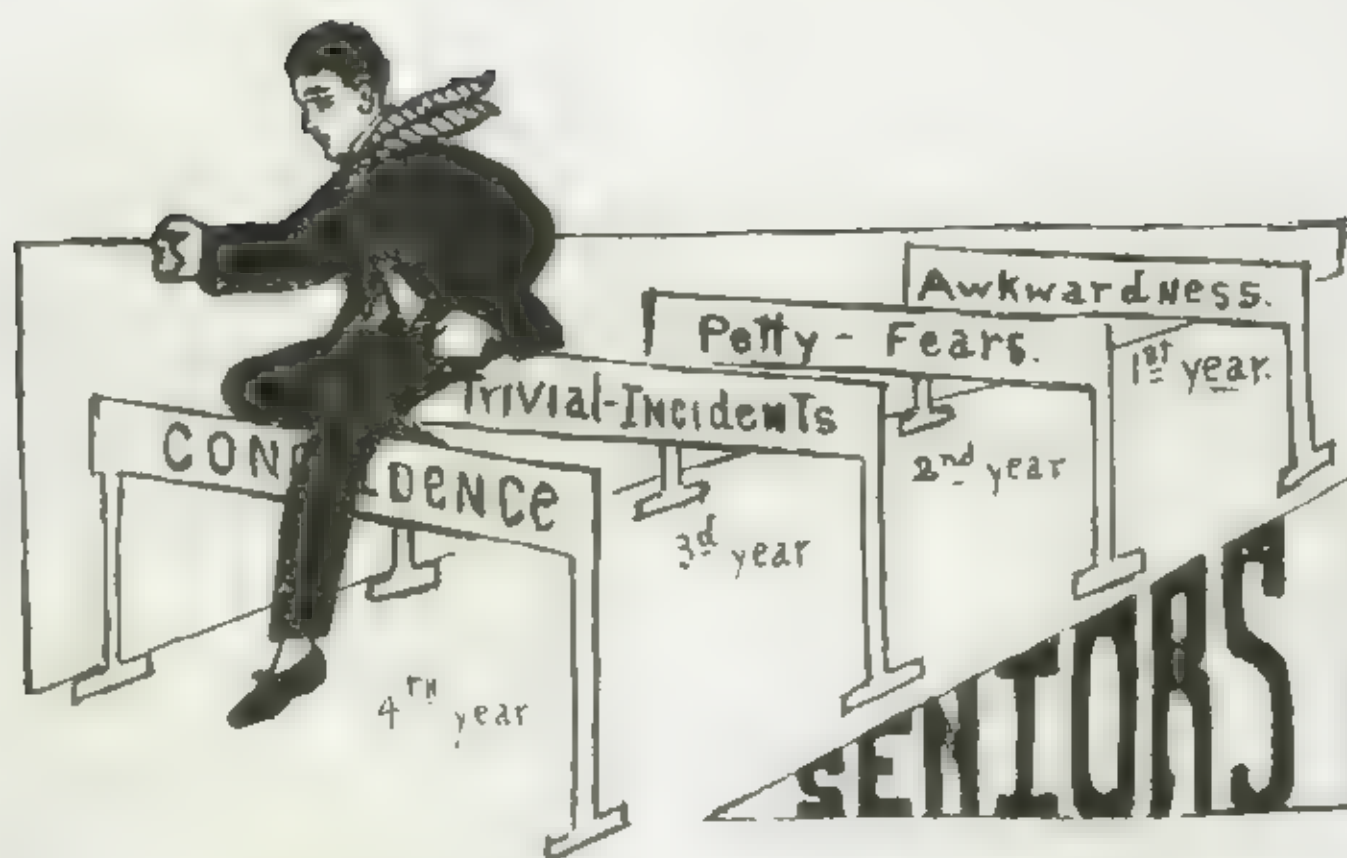 Awkwardness.
1st year.
Petty - Fears.
2nd year
Trivial-Incidents
3d year
CON DENCE
4TH year
SENIORS